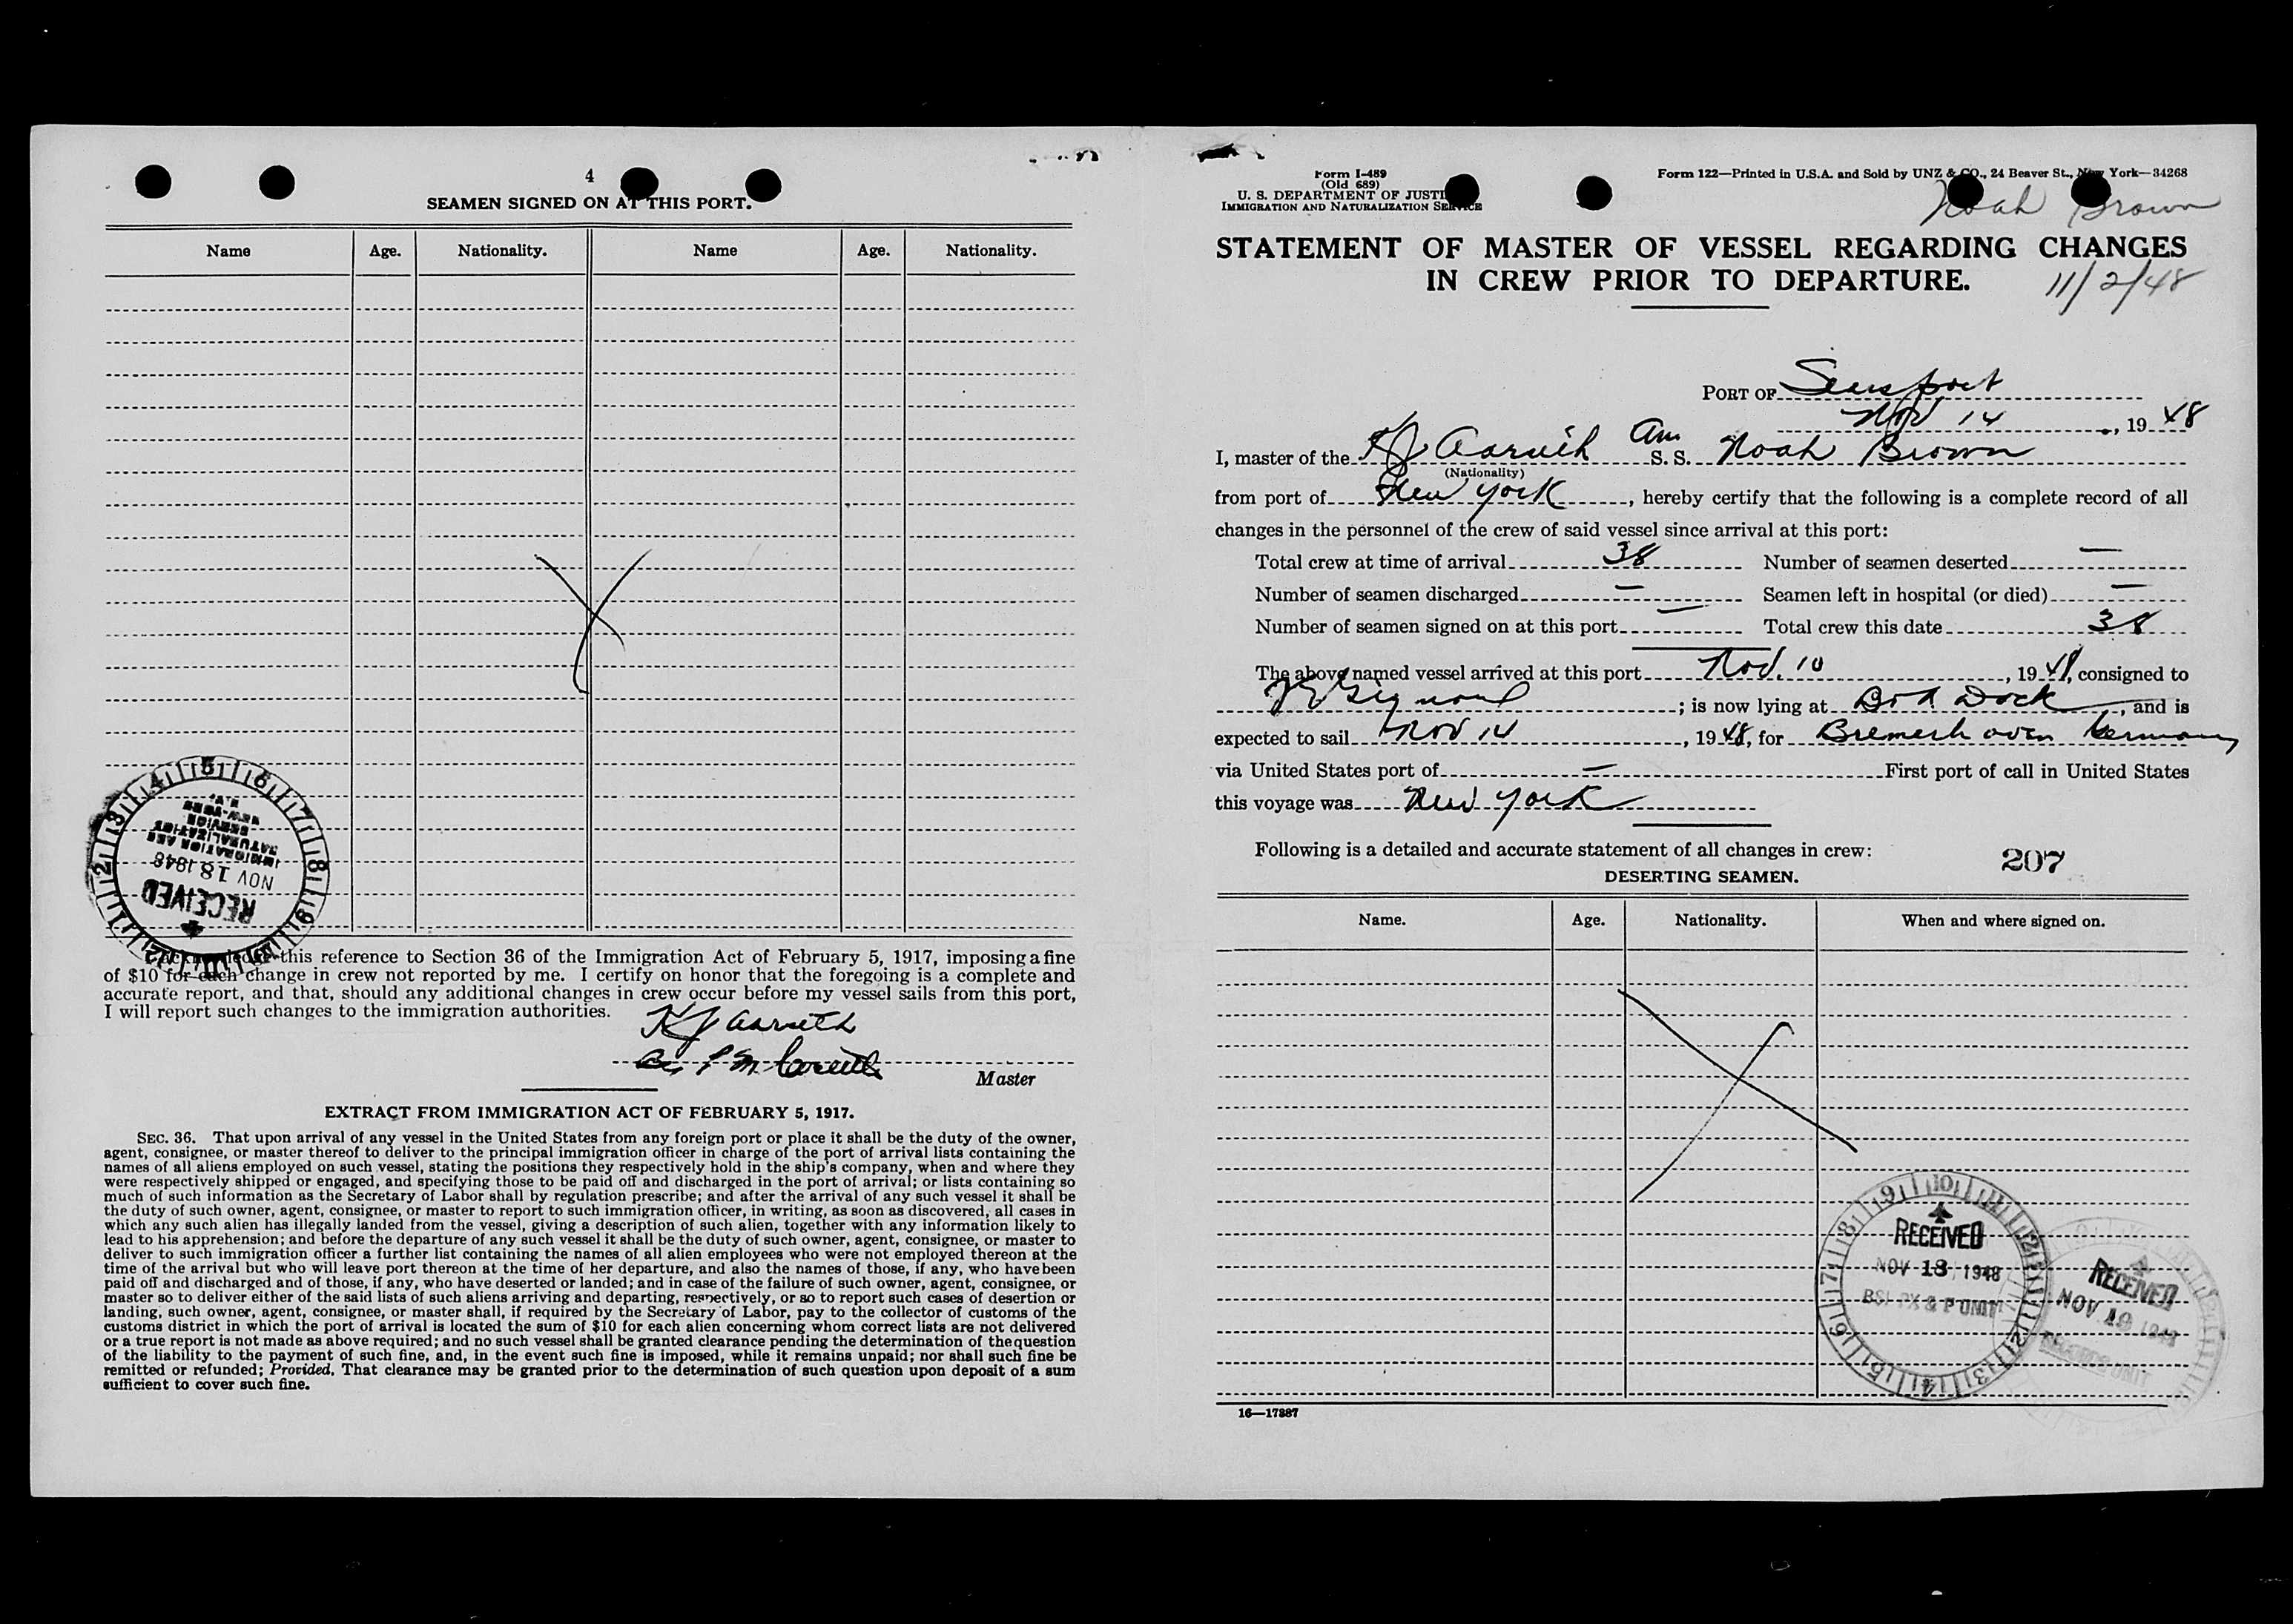 4
SEAMEN SIGNED ON AT THIS PORT.
Name Age. Nationality. Name Age. Nationality.
RECEIVED
NOV 18 1948
IMMIGRATION AND
NATURALIZATION
SERVICE
NEW YORK
N.Y.
this reference to Section 36 of the Immigration Act of February 5, 1917, imposing a fine
of $10 for each change in crew not reported by me. I certify on honor that the foregoing is a complete and
accurate report, and that, should any additional changes in crew occur before my vessel sails from this port,
I will report such changes to the immigration authorities.
Master
EXTRACT FROM IMMIGRATION ACT OF FEBRUARY 5, 1917.
SEC. 36. That upon arrival of any vessel in the United States from any foreign port or place it shall be the duty of the owner,
agent, consignee, or master thereof to deliver to the principal immigration officer in charge of the port of arrival lists containing the
names of all aliens employed on such vessel, stating the positions they respectively hold in the ship's company, when and where they
were respectively shipped or engaged, and specifying those to be paid off and discharged in the port of arrival; or lists containing so
much of such information as the Secretary of Labor shall by regulation prescribe; and after the arrival of any such vessel it shall be
the duty of such owner, agent, consignee, or master to report to such immigration officer, in writing, as soon as discovered, all cases in
which any such alien has illegally landed from the vessel, giving a description of such alien, together with any information likely to
lead to his apprehension; and before the departure of any such vessel it shall be the duty of such owner, agent, consignee, or master to
deliver to such immigration officer a further list containing the names of all alien employees who were not employed thereon at the
time of the arrival but who will leave port thereon at the time of her departure, and also the names of those, if any, who have been
paid off and discharged and of those, if any, who have deserted or landed; and in case of the failure of such owner, agent, consignee, or
master so to deliver either of the said lists of such aliens arriving and departing, respectively, or so to report such cases of desertion or
landing, such owner, agent, consignee, or master shall, if required by the Secretary of Labor, pay to the collector of customs of the
customs district in which the port of arrival is located the sum of $10 for each alien concerning whom correct lists are not delivered
or a true report is not made as above required; and no such vessel shall be granted clearance pending the determination of the question
of the liability to the payment of such fine, and, in the event such fine is imposed, while it remains unpaid; nor shall such fine be
remitted or refunded; Provided, That clearance may be granted prior to the determination of such question upon deposit of a sum
sufficient to cover such fine.
Form I-489
(Old 689)
U. S. DEPARTMENT OF JUSTICE
IMMIGRATION AND NATURALIZATION SERVICE
Form 122—Printed in U.S.A. and Sold by UNZ & CO., 24 Beaver St., New York—34268
Noah Brown
STATEMENT OF MASTER OF VESSEL REGARDING CHANGES
IN CREW PRIOR TO DEPARTURE.
11/2/48
PORT OF Searsport
Nov 14, 19 48
I, master of the Am S. S. Noah Brown
(Nationality)
from port of New York, hereby certify that the following is a complete record of all
changes in the personnel of the crew of said vessel since arrival at this port:
Total crew at time of arrival 38 Number of seamen deserted —
Number of seamen discharged — Seamen left in hospital (or died) —
Number of seamen signed on at this port — Total crew this date 38
The above named vessel arrived at this port Nov. 10, 19 48, consigned to
; is now lying at Dock, and is
expected to sail Nov 14, 19 48, for Bremerhaven Germany
via United States port of — First port of call in United States
this voyage was New York
Following is a detailed and accurate statement of all changes in crew:
207
DESERTING SEAMEN.
Name. Age. Nationality. When and where signed on.
RECEIVED
NOV 18 1948
BSI PX & P UNIT
RECEIVED
NOV 19 1948
RECORDS UNIT
16—17887